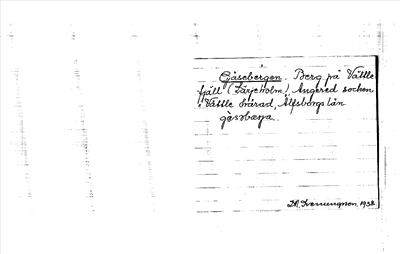 Gåsebergen. Berg på Vättle
fjäll (Lärjeholm), Angered socken
i Vättle härad, Älfsborgs län
gåsabærja.
1938